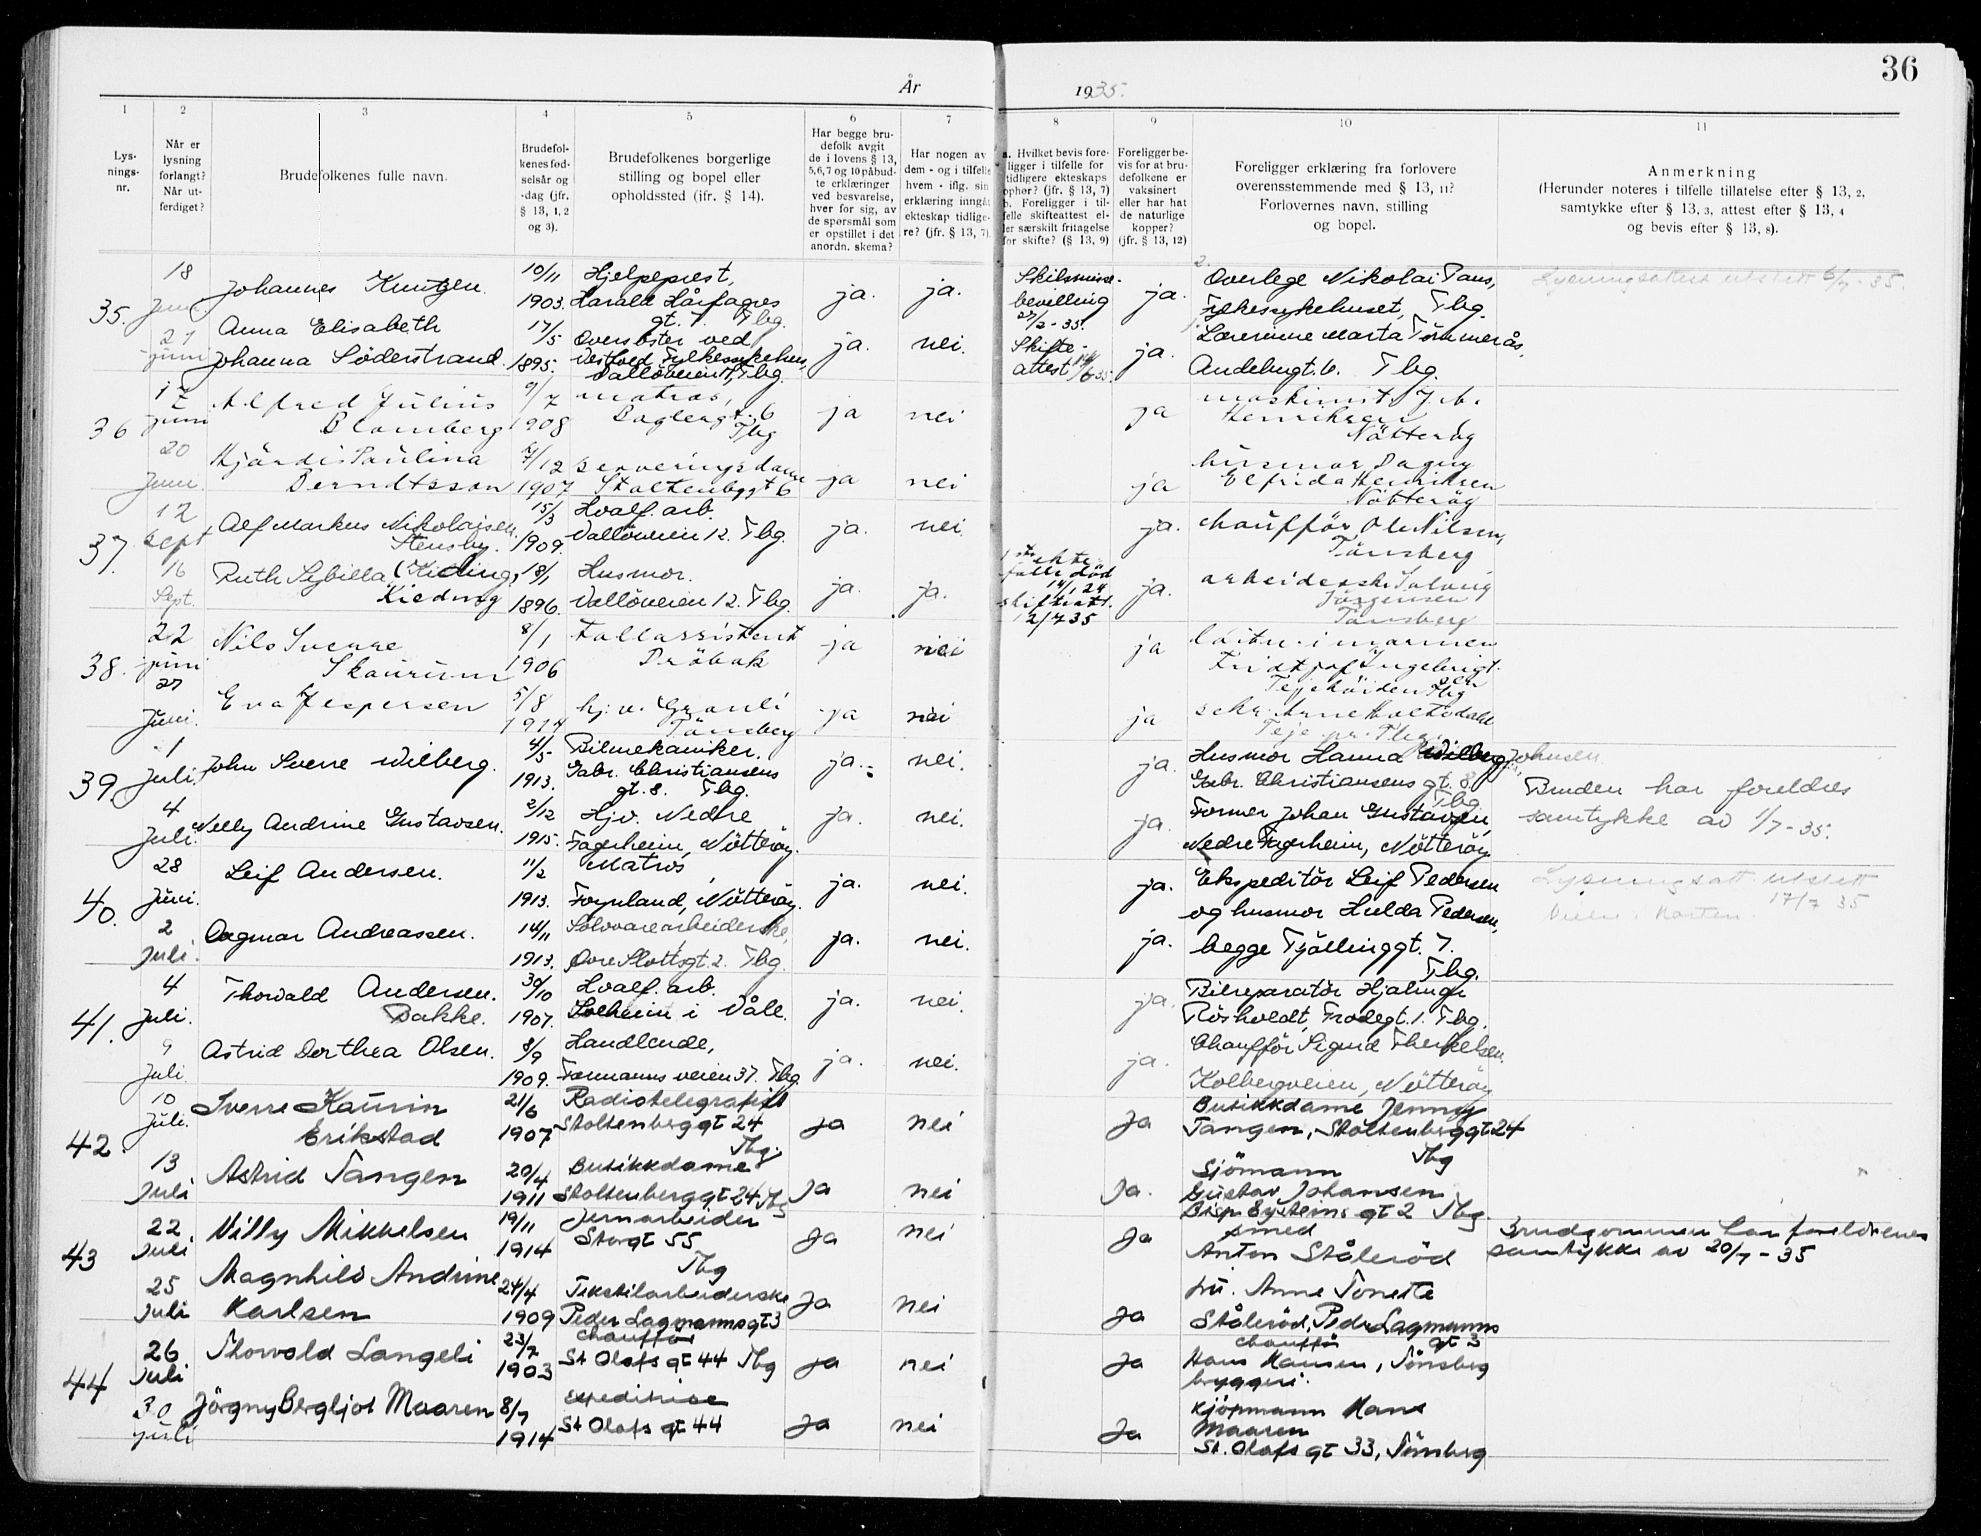 36
År 1935.
1 2 3 4 5 6 7 8 9 10 11
Lys-
nings-
nr.
Når er
lysning
forlangt?
Når ut-
ferdiget?
Brudefolkenes fulle navn.
Brudefol-
kenes fød-
selsår og
-dag (jfr.
§ 13, 1, 2
og 3).
Brudefolkenes borgerlige
stilling og bopel eller
opholdssted (jfr. § 14).
Har begge bru-
defolk avgit
de i lovens § 13,
5, 6, 7 og 10 påbud-
te erklæringer
ved besvarelse,
hver for sig, av
de spørsmål som
er opstillet i det
anordn. skema?
Har nogen av
dem - og i tilfelle
hvem - iflg. sin
erklæring inngåt
ekteskap tidlige-
re? (jfr. § 13, 7).
a. Hvilket bevis fore-
ligger i tilfelle for
tidligere ekteskaps
ophør? (jfr. § 13, 7)
b. Foreligger i til-
felle skifteattest el-
ler særskilt fritagelse
for skifte? (§ 13, 9)
Foreligger be-
vis for at bru-
defolkene er
vaksinert
eller har hat
de naturlige
kopper?
(jfr. § 13, 12)
Foreligger erklæring fra forlovere
overensstemmende med § 13, 11?
Forlovernes navn, stilling
og bopel.
Anmerkning
(Herunder noteres i tilfelle tillatelse efter § 13, 2,
samtykke efter § 13, 3, attest efter § 13, 4
og bevis efter § 13, 8).
35.
18
Juni
Johannes Knutzen.
10/11
1903.
Hjelpeprest,
Harald Hårfagres
gt. 7. Tbg.
ja. ja.
Skilsmisse-
bevilling
ja.
2.
Overlege Nikolai Paus,
Fylkessykehuset, Tbg.
Lysningsattest utstett 6/7 - 35.
27
juni
Anna Elisabeth
Johanna Söderstrand.
17/5
1895.
Oversöster ved
Vestfold Fylkessykehus,
Vallöveien 11, Tbg.
ja. nei.
Skifte-
attest
ja.
1.
Lærerinne Marta Tömmerås,
Andebugt. 6. Tbg.
36
17
juni
Alfred Julius
Blomberg
9/7
1908
matros,
Baglergt. 6
Tbg
ja nei ja
maskinist J. M.
Henriksen
Nötteröy
20
Juni.
Hjördis Paulina
Berndtsson
7/12
1907
serveringsdame
Stoltenbggt 6
ja nei ja
husmor Dagny
Elfrida Henriksen
Nötteröy
37.
12
Sept
Alf Markus Nikolaisen
Stensby.
15/3
1909.
Hvalf. arb.
Vallöveien 12. Tbg.
ja. nei. ja.
chaufför Ole Nilsen,
Tönsberg
16
Sept.
Ruth Sybilla
18/1
1896.
Husmor.
Vallöveien 12. Tbg.
ja. ja.
död
14/1 24
skifteatt.
12/7 35
ja.
arbeiderske Solveig
Jörgensen
Tönsberg
38.
22
juni
Nils Sverre
Skaurum
8/1
1906
tollassistent
Dröbak
ja nei ja
löitn. i marinen
Fridtjof Ingebrigt-
sen
Teiehöiden Tbg
27
Juni.
Eva Jespersen
5/8
1914
hj. v. Granli
Tönsberg
ja nei ja
sekr. Arne Holtsdahl
Teie pr. Tbg.
39
1
Juli.
John Sverre Wilberg.
4/5
1913.
Bilmekaniker.
Gabr. Christiansens
gt. 8. Tbg.
ja. nei. ja.
Husmor Hanna Wilberg Johnsen
Gabr. Christiansens gt. 8.
Tbg.
4
Juli.
Nelly Andrine Gustavsen.
2/12
1915.
Hjv. Nedre
Fagerheim, Nötteröy.
ja. nei. ja.
Former Johan Gustavsen,
Nedre Fagerheim, Nötteröy
Bruden har foreldres
samtykke av 1/7 - 35.
40.
28
Juni.
Leif Andersen.
11/2
1913.
Matros,
Föynland, Nötteröy.
ja. nei. ja.
Ekspeditör Leif Pedersen
og husmor Hulda Pedersen,
Lysningsatt utstett
17/7 35
2
Juli.
Dagmar Andreassen.
14/11
1913.
Sölvvarearbeiderske,
Övre Slottsgt 2. Tbg.
ja. nei. ja.
begge Tjöllinggt. 7.
Tbg.
41.
4
Juli.
Thorvald Andersen.
Bakke.
30/10
1907.
Hvalf. arb.
Solheim i Våle.
ja. nei. ja.
Bilreparatör Hjalmar
Rösholdt, Frodegt. 1. Tbg.
9
Juli.
Astrid Dorthea Olsen.
8/9
1909.
Handlende,
Farmanns veien 37. Tbg.
ja. nei. ja.
Chaufför Sigurd Therkelsen.
Kolbergveien, Nötteröy
42.
10
Juli.
Sverre Kaurin
Erikstad
21/6
1907
Radiotelegrafist
Stoltenberggt 24
Tbg.
Ja nei Ja
Butikkdame Jenny
Tangen, Stoltenberggt 24
Tbg
13
Juli
Astrid Tangen
20/4
1911
Butikkdame
Stoltenberggt 24 Tbg
Ja nei Ja.
Sjömann
Gustav Johansen
Bisp Eysteins gt 2 Tbg.
43
22
Juli
Villy Mikkelsen
19/11
1914
Jernarbeider
Storgt 55
Tbg
Ja nei Ja
smed
Anton Stålerød
Brudgommen har foreldrenes
samtykke av 20/7 - 35
25
Juli
Magnhild Andrine
Karlsen
24/4
1909
Tekstilarbeiderske
Peder Lagmannsgt 3
Ja nei Ja
fru. Anne Tonette
Stålerød, Pedr Lagmanns
gt 3
44
26
Juli
Thorvald Langeli
23/7
1903
chauffør
St Olafs gt 44 Tbg
Ja nei Ja
chauffør
Hans Hansen, Tönsberg
bryggeri.
30
juli
Jörgny Bergljot Maaren
8/7
1914
expeditrise
St Olafs gt 44
Ja nei Ja
Kjöpmann Hans
Maaren
St. Olafs gt 33, Tönsberg